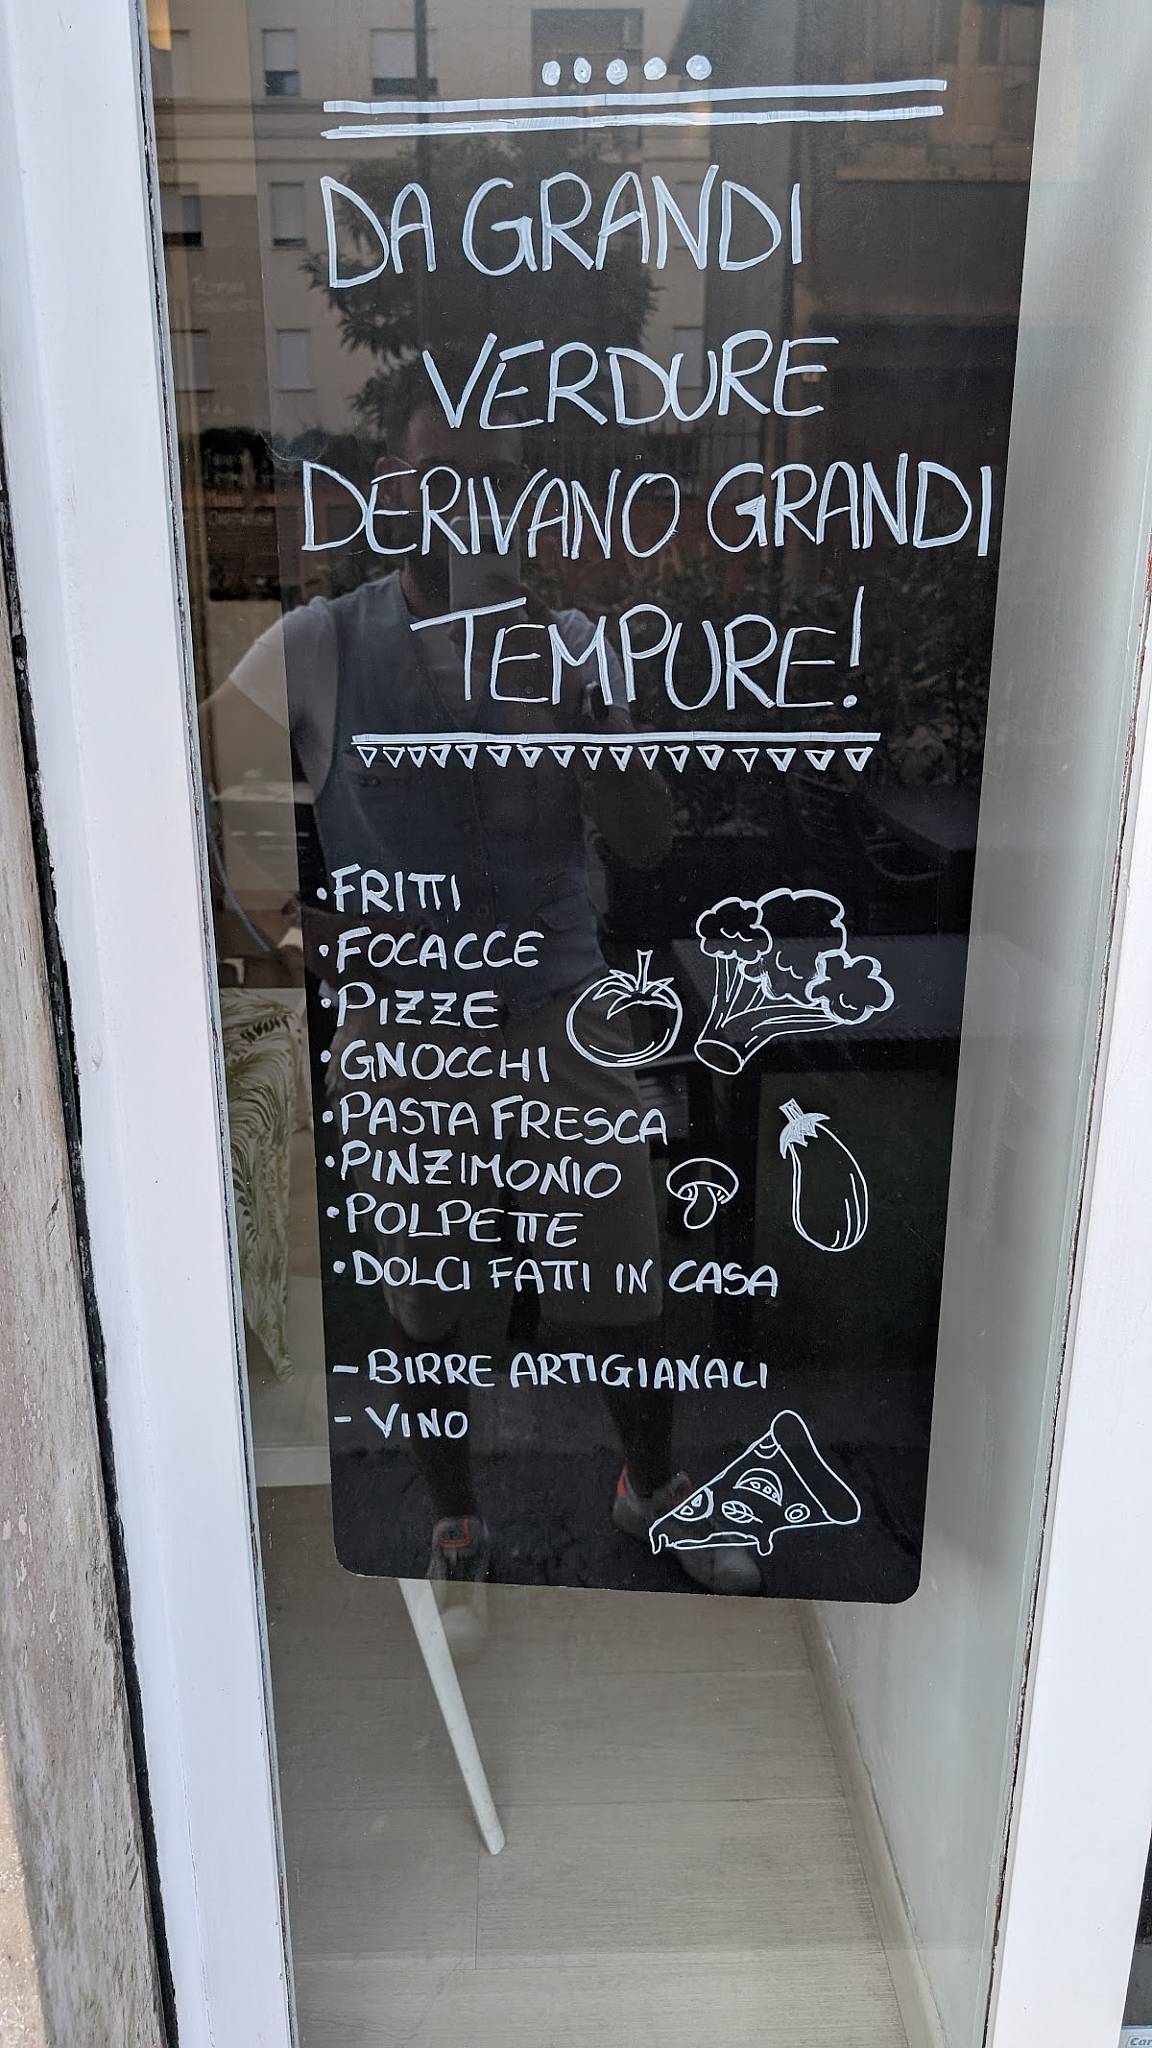 DA GRANDI
VERDURE
DERIVANO GRANDI
TEMPURE!
• FRITTI
• FOCACCE
• PIZZE
• GNOCCHI
• PASTA FRESCA
• PINZIMONIO
• POLPETTE
• DOLCI FATTI IN CASA
- BIRRE ARTIGIANALI
- VINO